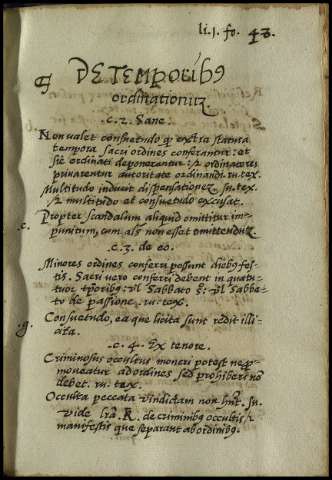 li. j. fo. 43.
DE TEMPORIBꝰ
ordinationuꝫ
.c. 2. Sane.
Non valet consuetudo ꝙ extra statuta
tempora sacri ordines conferantur: et
sic ordinati deponerentur: & ordinatores
privarentur autoritate ordinandi. ru. tex.
Multitudo inducit dispensationeꝫ. su. tex.
& multitudo et consuetudo excusat.
Propter scandalum aliquid omittitur im-
punitum, cum aliꝰ non esset omittenduꝫ
.c. 3. de eo.
Minores ordines conferri possunt diebꝰ fes-
tis. Sacri vero conferri debent in quatu-
tuor tꝑoribꝰ: vel Sabbato
to de passione. ru. tex.
Consuetudo, ea que licita sunt redit illi-
cita.
.c. 4. Ex tenore.
Criminosus occultus moneri potest ne pro-
moveatur ad ordines sed prohiberi nõ
debet. ru. tex.
Occulta peccata vindictam non hñt. su.
vide R. de criminibꝰ occultis &
manifestis que separant ab ordinibꝰ.